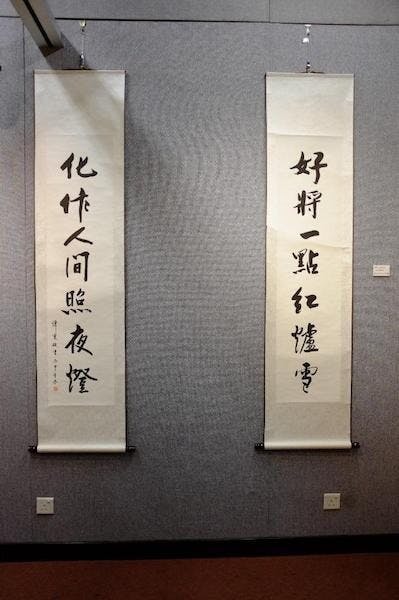 好將一點紅爐雪
化作人間照夜燈